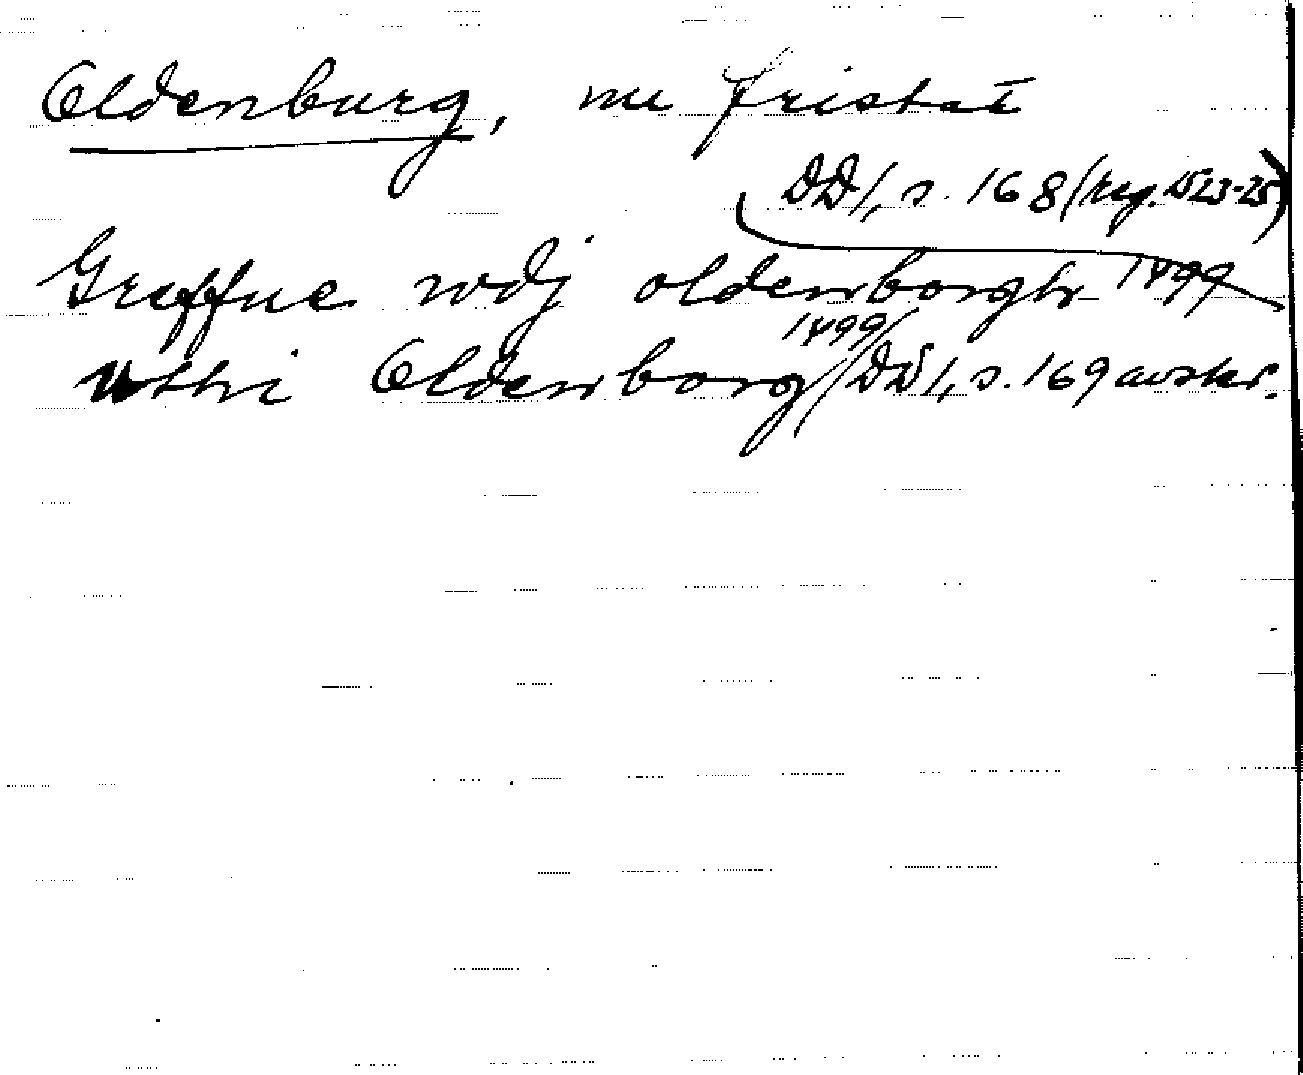 Oldenburg, nu fristat
DD1, s. 168 (reg. 1523-25)
Greffue wdj oldenborgh 1499
uthi Oldenborg 1499 / DD1, s. 169 avskr.